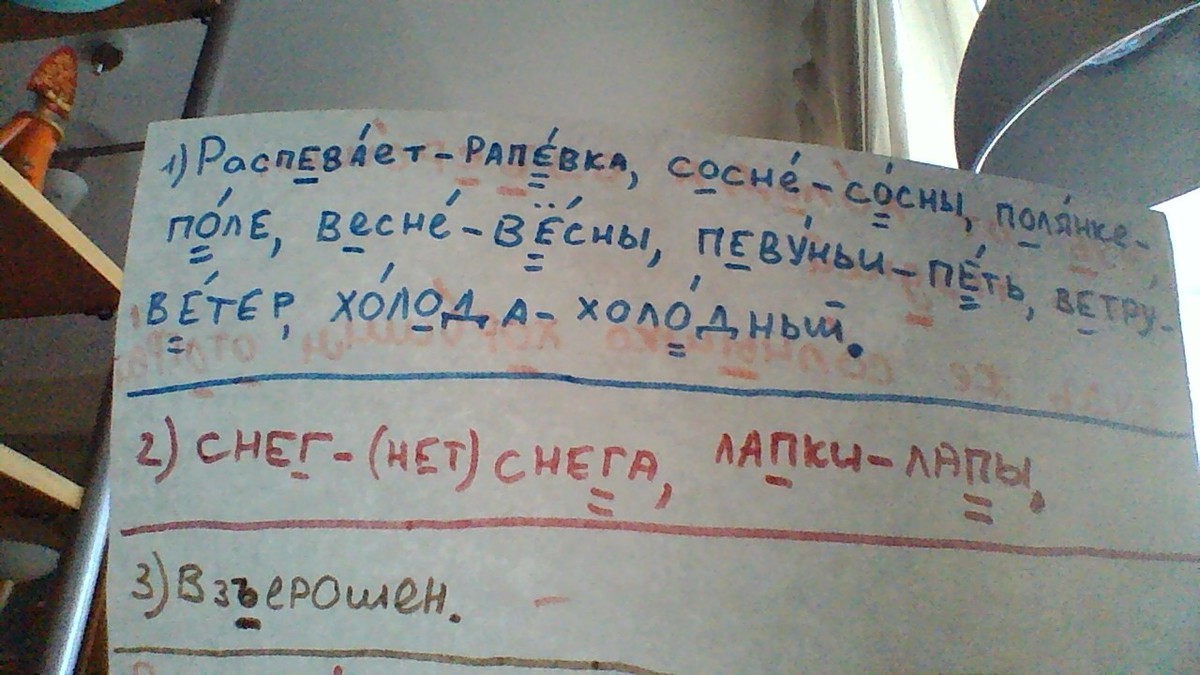 1) Распева́ет - Рапе́вка, сосне́ - со́сны, поля́нке -
по́ле, весне́ - вё́сны, певу́ньи - пе́ть, ветру́ -
ве́тер, хо́лода - холо́дный.
2) Снег - (нет) снега, лапки - лапы,
3) Взъерошен.